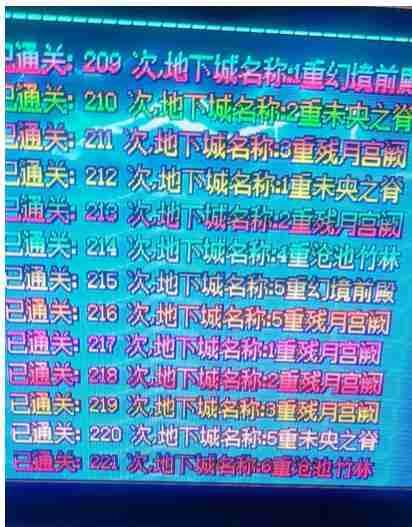 已通关: 209 次,地下城名称:1重幻境前殿
已通关: 210 次,地下城名称:2重未央之脊
已通关: 211 次,地下城名称:3重残月宫阙
已通关: 212 次,地下城名称:1重未央之脊
已通关: 213 次,地下城名称:2重残月宫阙
已通关: 214 次,地下城名称:4重沧池竹林
已通关: 215 次,地下城名称:5重幻境前殿
已通关: 216 次,地下城名称:5重残月宫阙
已通关: 217 次,地下城名称:1重残月宫阙
已通关: 218 次,地下城名称:2重残月宫阙
已通关: 219 次,地下城名称:3重残月宫阙
已通关: 220 次,地下城名称:5重未央之脊
已通关: 221 次,地下城名称:6重沧池竹林